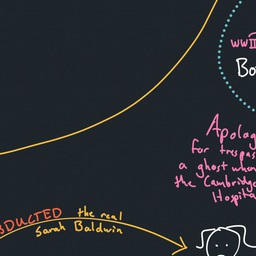 WWII
Apolog
for trespas
a ghost when
the Cambridge
Hospita
ABDUCTED the real
Sarah Baldwin